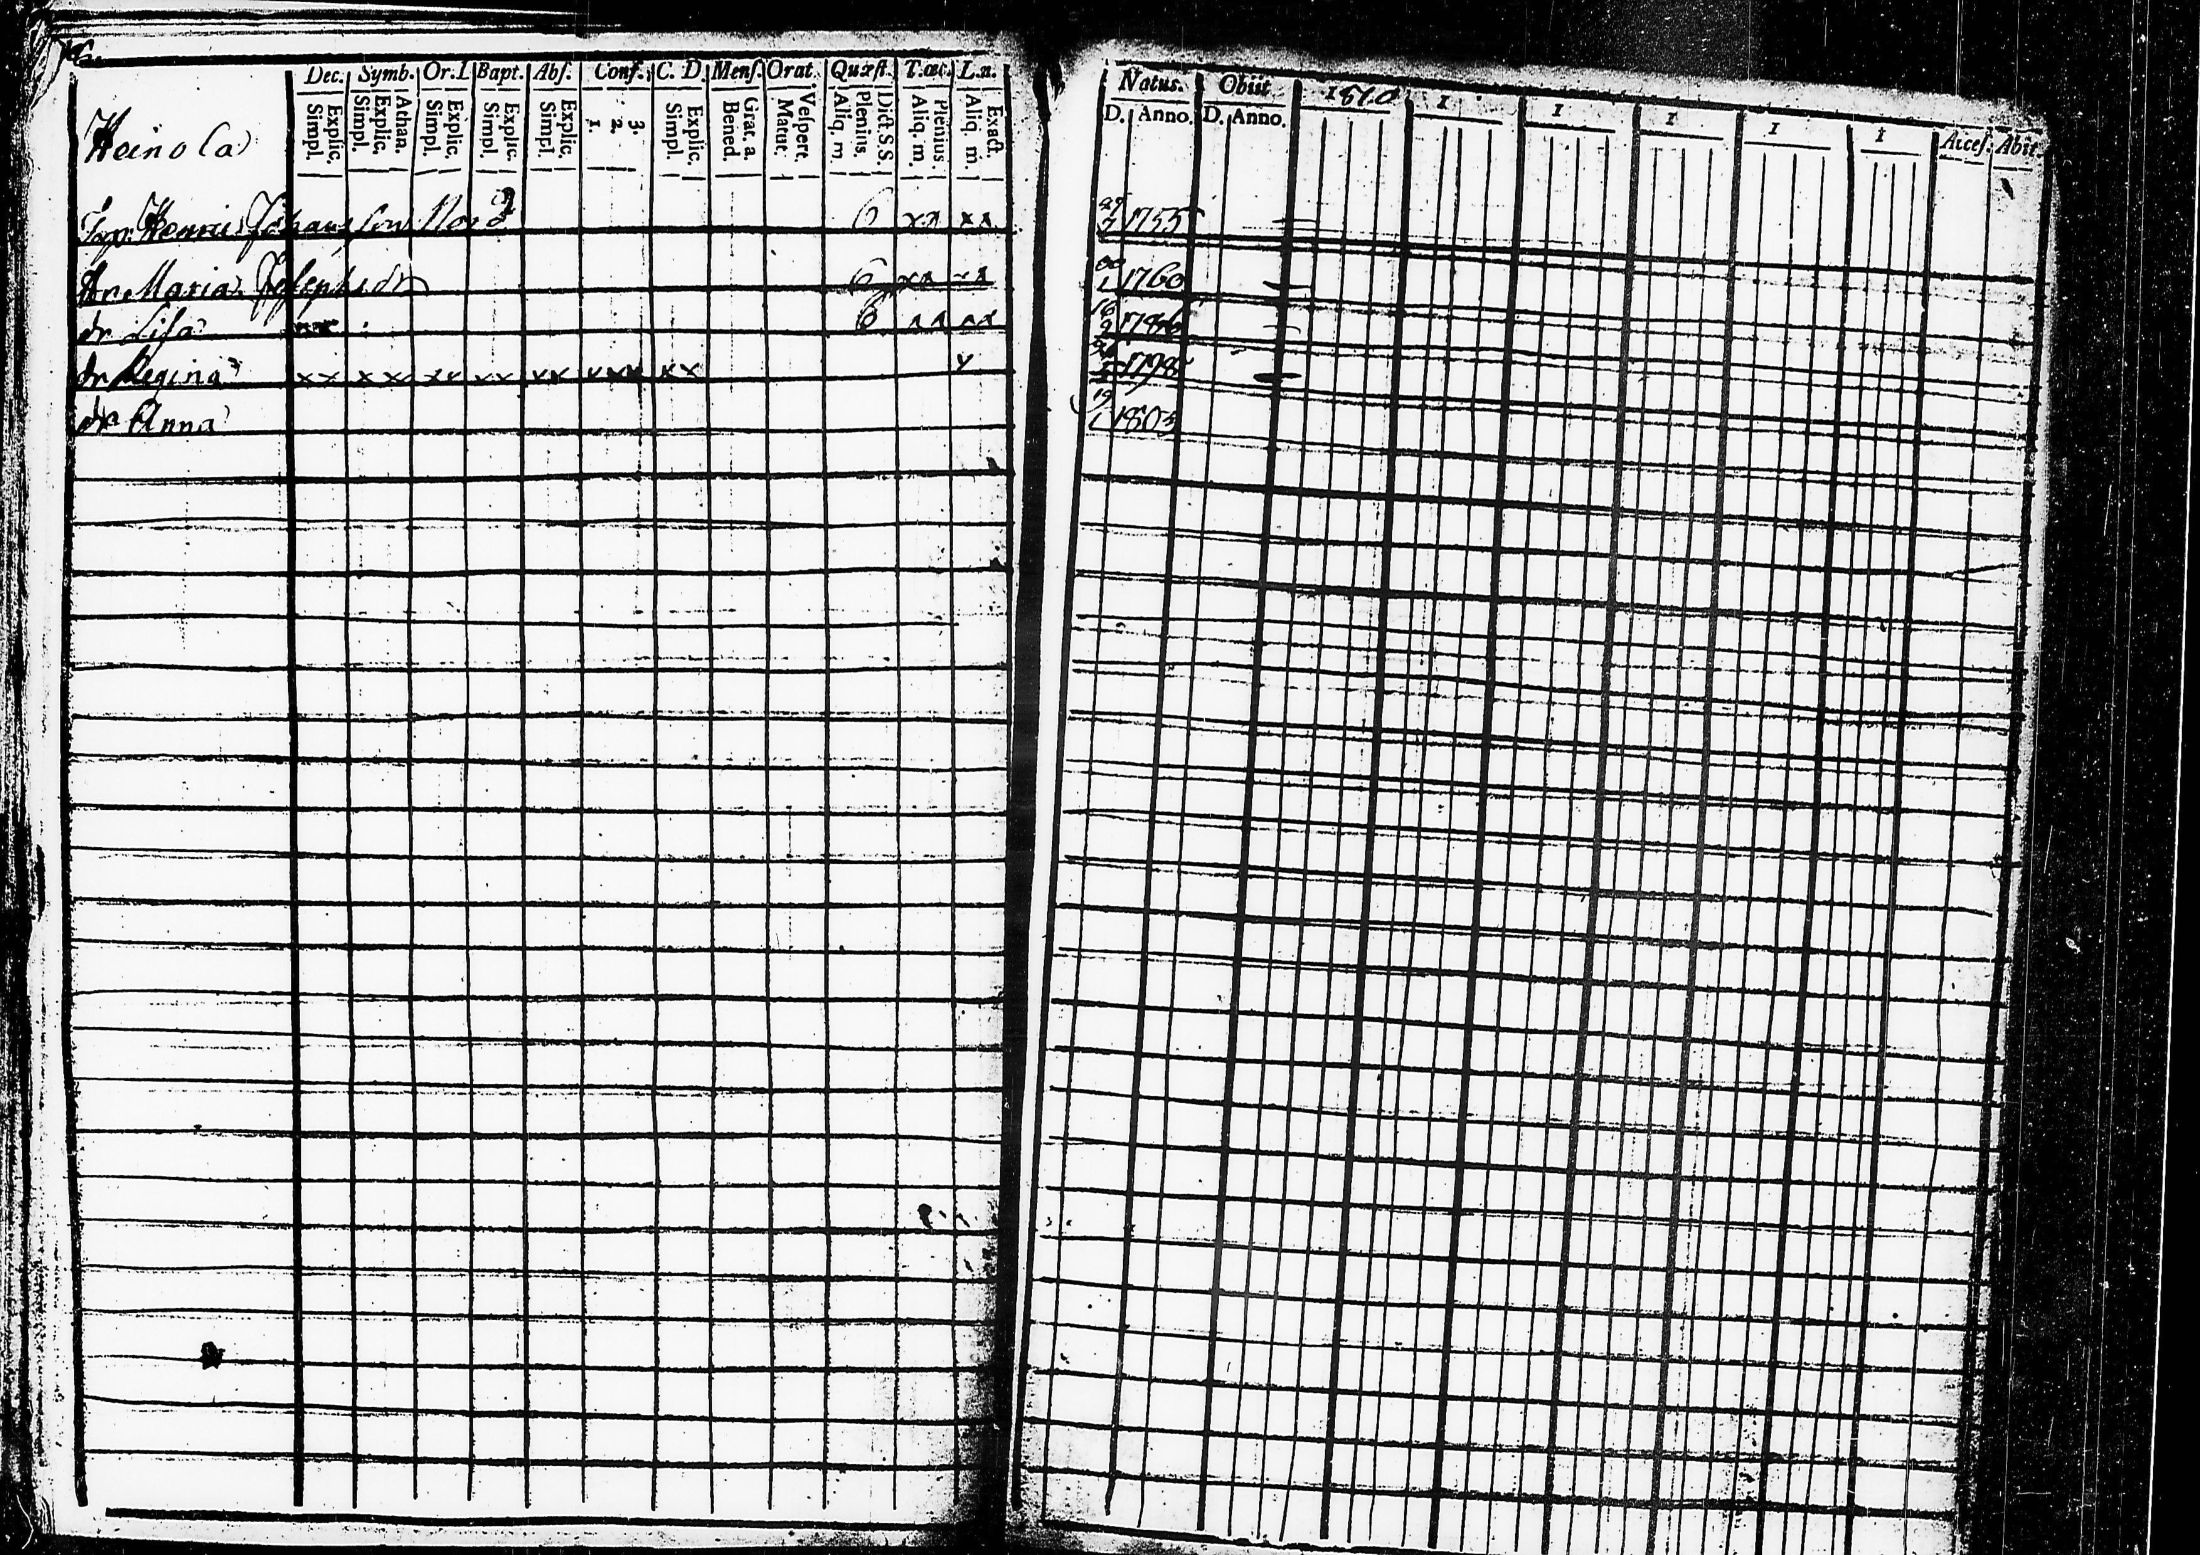 Dec. Symb. Or. D. Bapt. Abſ. Conf. C. D. Menſ. Orat. Quæſt. T. œc. L. n.
Simpl. Explic. Simpl. Explic. Athan. Simpl. Explic. Simpl. Explic. Simpl. Explic. 1. 2. 3. Simpl. Explic. Bened. Grat. a. Matut. Veſpert. Aliq. m. Plenius. Dict. S.S. Aliq. m. Plenius. Aliq. m. Exact.
Heinola
Henric Johansson 6 xx xx
Maria Josephsdr 6 xx xx
dr Lisa 6 xx xx
dr Regina xx xx xx xx xx xxx xx x
dr Anna
Natus. Obiit 1810 1 1 1 1 1 Acceſ. Abit.
D. Anno. D. Anno.
1755
1760
1786
1798
19
1 1803